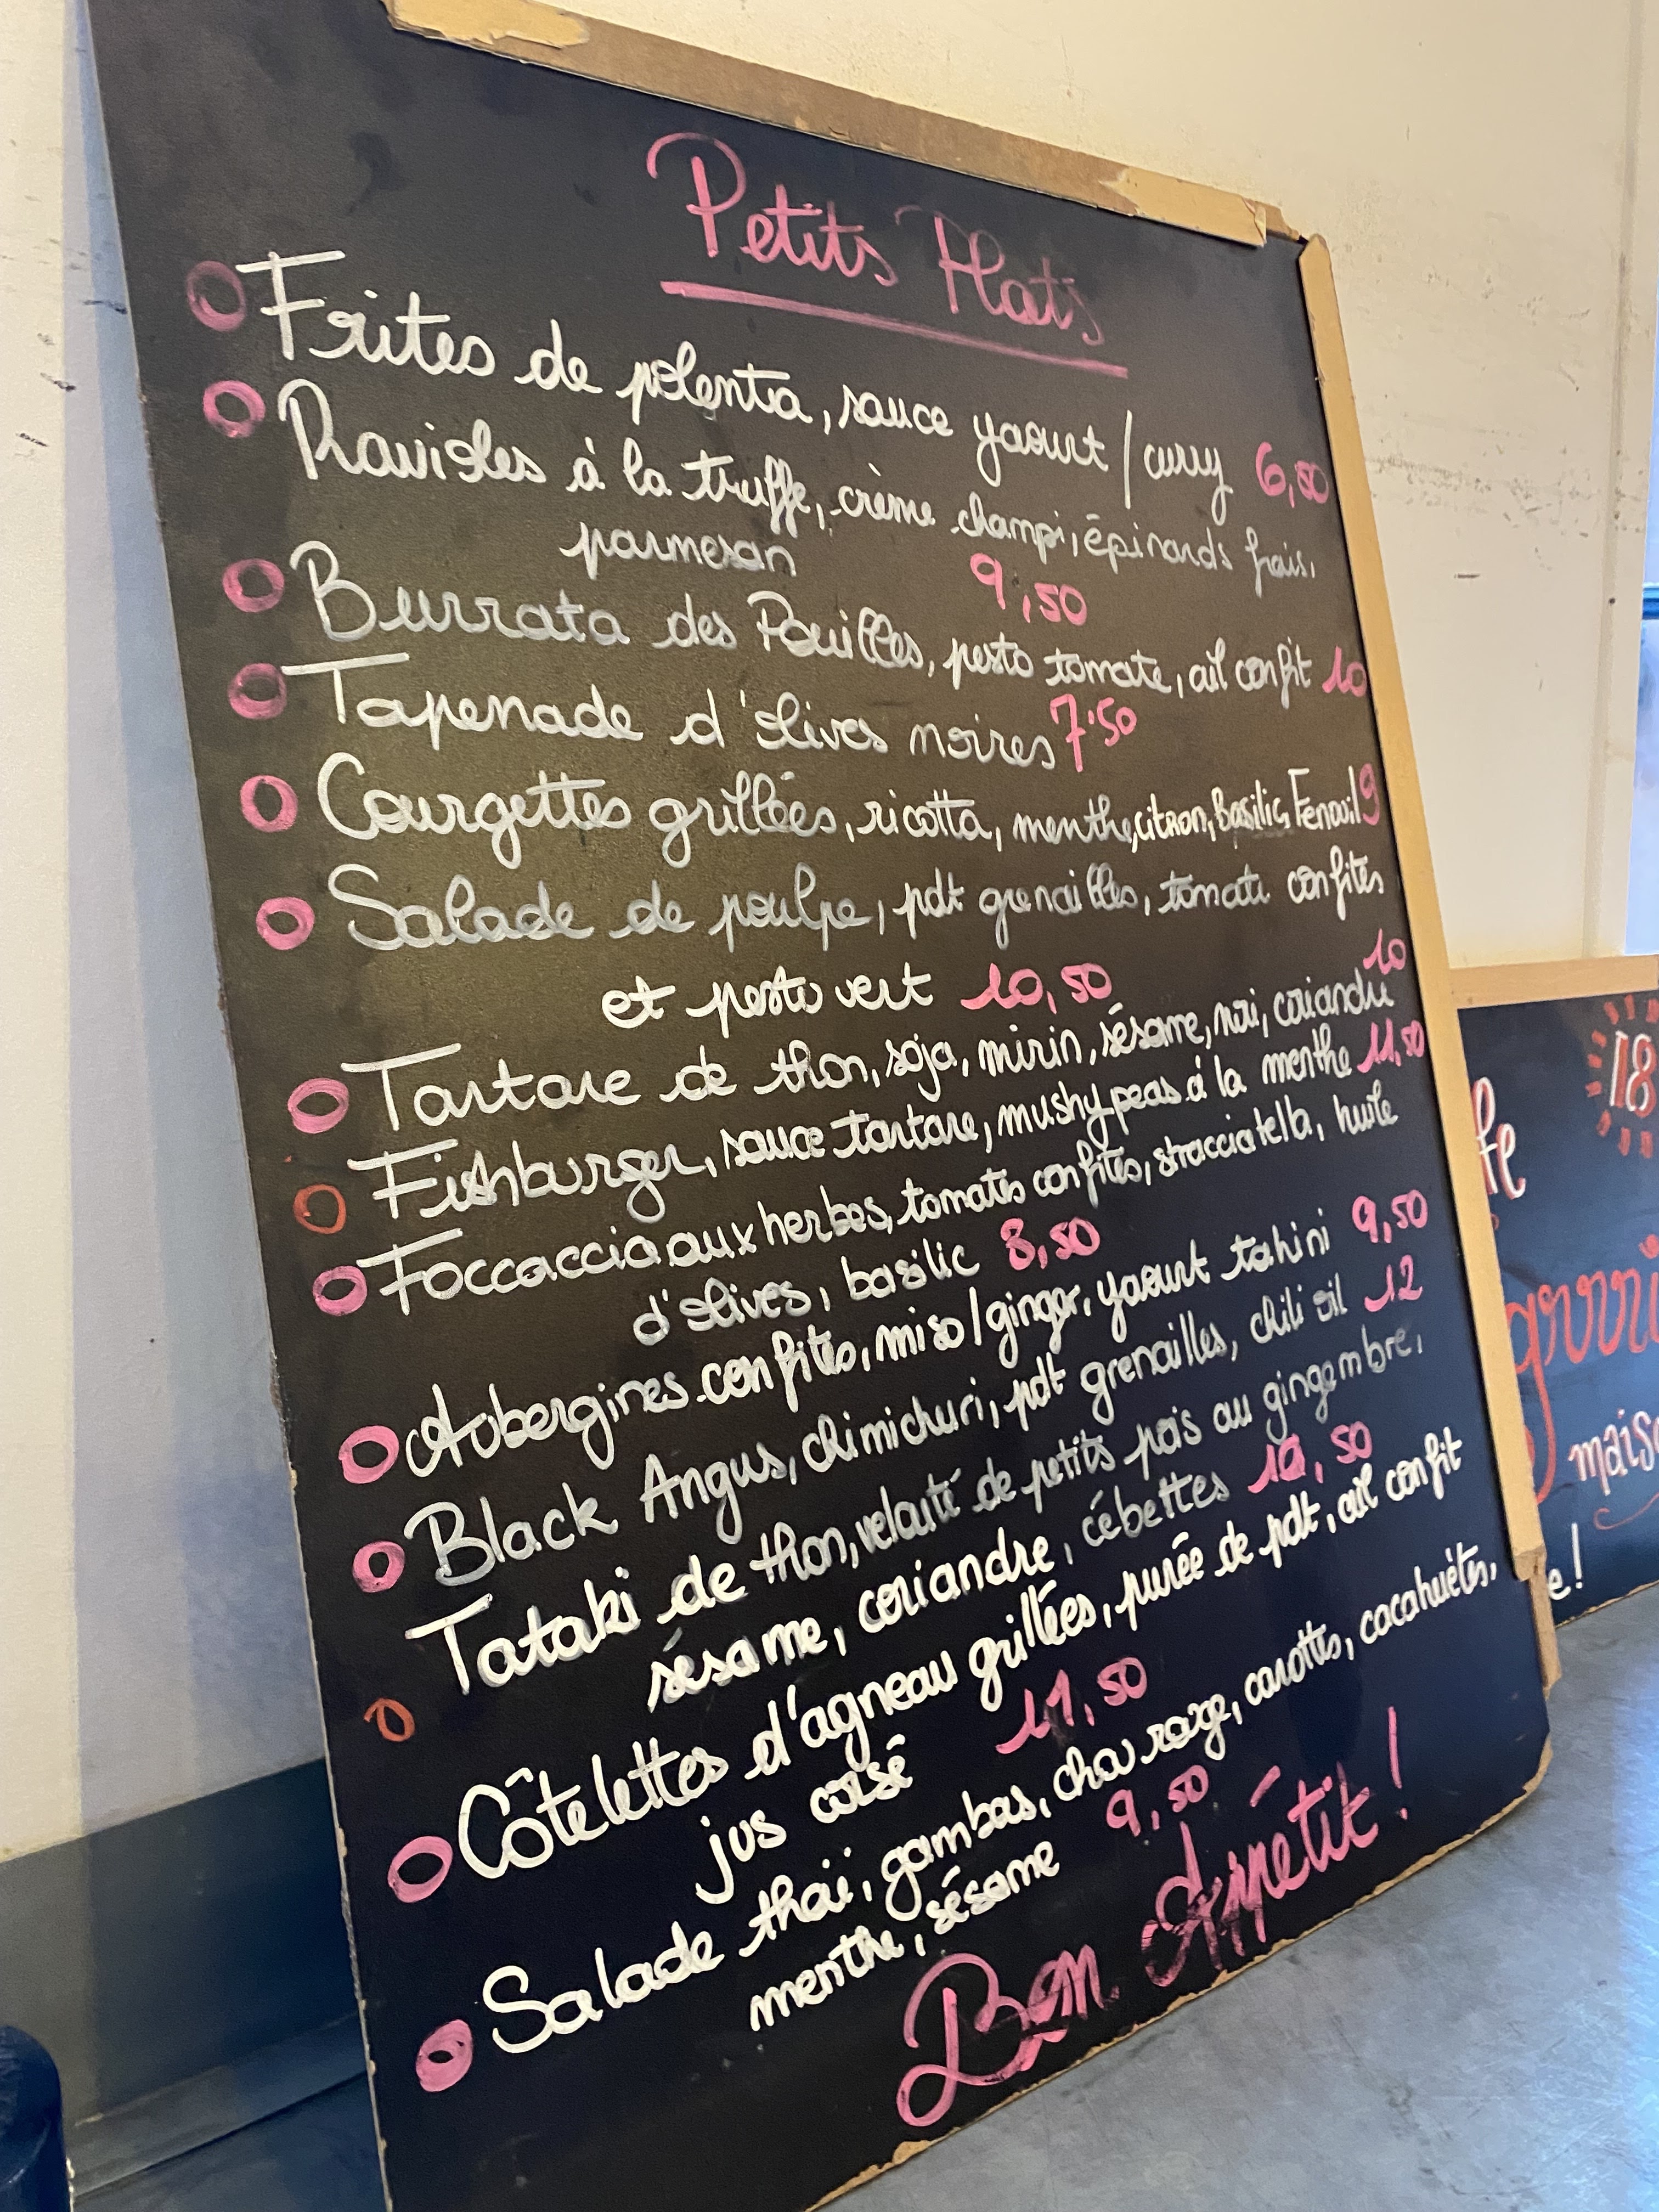 Petits Plats
Frites de polenta, sauce yaourt / curry 6,50
Ravioles à la truffe, crème champi, épinards frais,
parmesan 9,50
Burrata des Pouilles, pesto tomate, ail confit 10
Tapenade d'olives noires 7.50
Courgettes grillées, ricotta, menthe, citron, Basilic, Fenouil 9
Salade de poulpe, pdt grenailles, tomate confites
et pesto vert 10,50
Tartare de thon, soja, mirin, sésame, nori, coriandre 10
Fishburger, sauce tartare, mushy peas à la menthe 11,50
Foccaccia aux herbes, tomates confites, stracciatella, huile
d'olives, basilic 8,50
Aubergines confites, miso / ginger, yaourt tahini 9,50
Black Angus, chimichuri, pdt grenailles, chili oil 12
Tataki de thon, velouté de petits pois au gingembre,
sésame, coriandre, cébettes 10,50
Côtelettes d'agneau grillées, purée de pdt, ail confit
jus corsé 11,50
Salade thaï, gambas, chou rouge, carottes, cacahuètes,
menthe, sésame 9,50
Bon Appétit !
18
e !